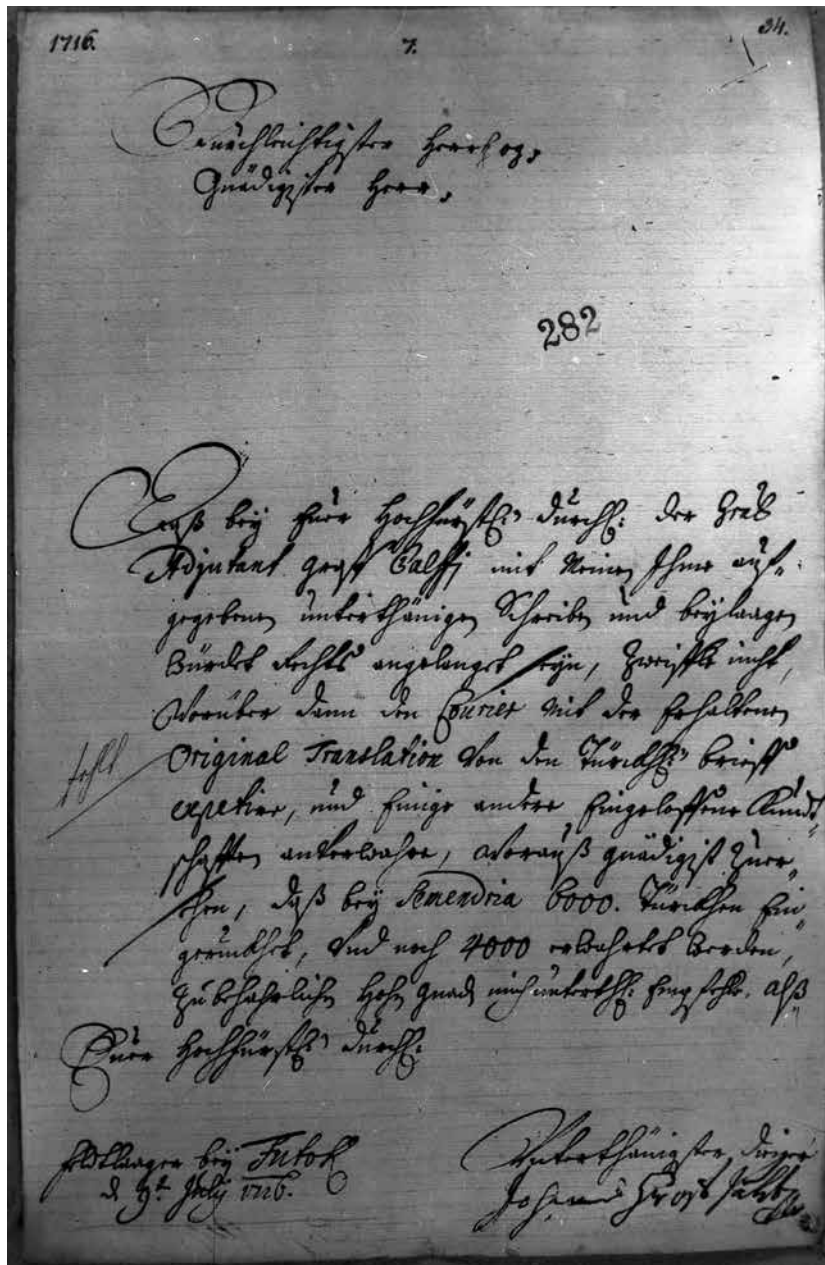 1716. 7. 34.
Durchleichtigster Herzog,
Gnädigster Herr,
282
Daß bey Euer Hochfürstl: Durchl: der Gral
Adjutant graff Palffj mit Meinen Ihme auf-
gegebenen unterthänigen Schreiben und beylaagen
Würdet Rechts angelanget seyn, Zweiffle nicht,
Worüber dann den Courier mit der Erhaltenen
fehlt
Original Translation Von den Türckh: brieff
expedire, und Einige andere Eingeloffene Kundt-
schafften anverwahre, Worauß gnädigist Zuer-
sehen, daß bey Semendria 6000. Türckhen Ein-
geruckhet, Vnd noch 4000 erwahrtet werden,
Zu beharlichen Hohen gnad mich unterth: Empfehle. alß
Euer Hochfürstl: Durchl:
feldtlaager bey Futok
d. 9t July 1716.
Vnterthänigster diener
Johann Graff